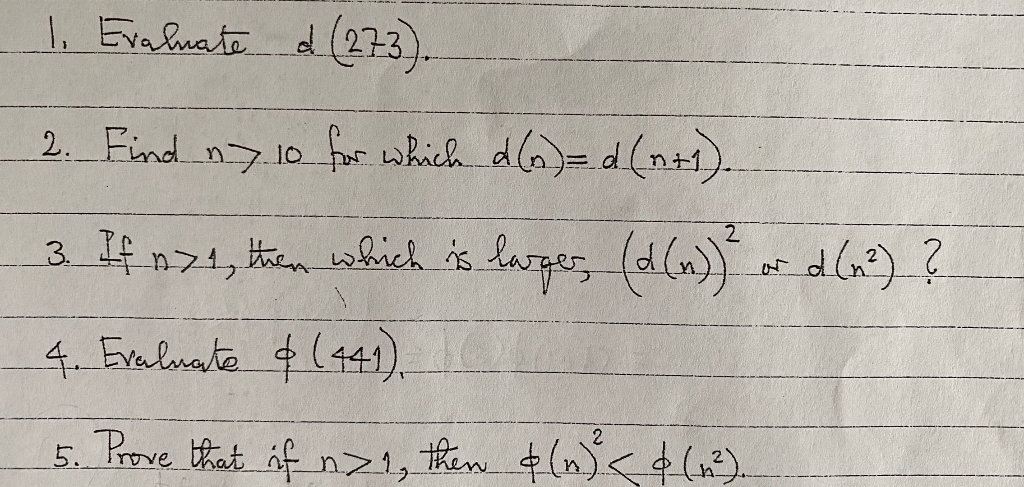 1. Evaluate d(273).
2. Find n > 10 for which d(n) = d(n+1).
3. If n > 1, then which is larger, (d(n))² or d(n²) ?
4. Evaluate ϕ(441).
5. Prove that if n > 1, then ϕ(n)² < ϕ(n²).